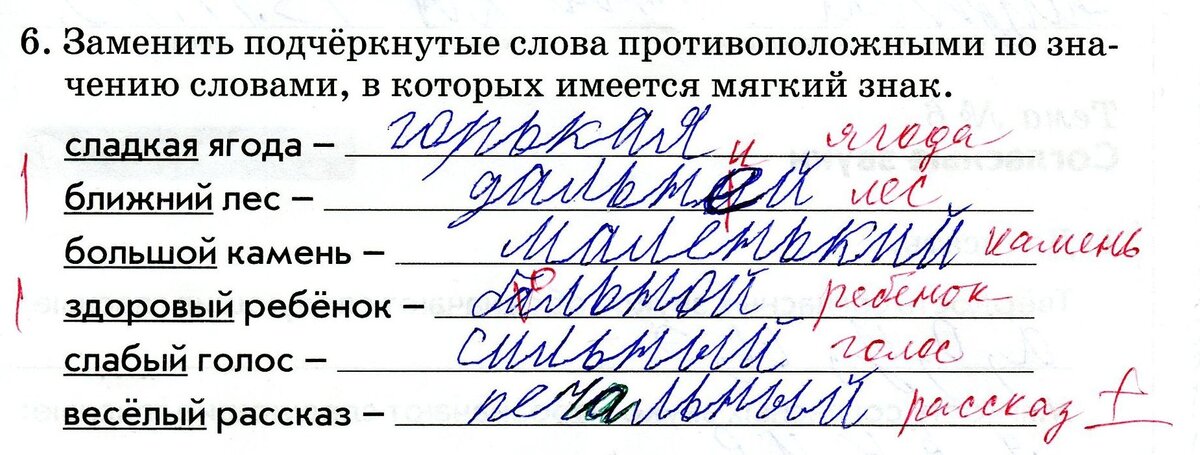 6. Заменить подчёркнутые слова противоположными по зна-
чению словами, в которых имеется мягкий знак.
сладкая ягода – горькая ягода
и
ближний лес – дальней лес
большой камень – маленький камень
о
здоровый ребёнок – бальной ребёнок
слабый голос – сильный голос
весёлый рассказ – печальный рассказ +